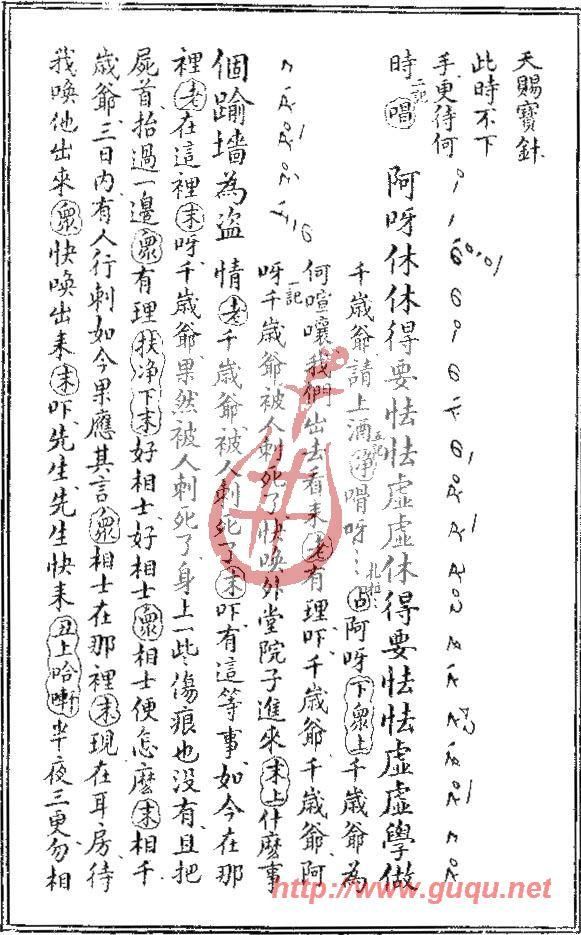 天賜寶針
此時不下
手更待何
時 一記 唱 阿呀休休得要怯怯虛虛休得要怯怯虛虛學做
千歲爺請上酒 淨 嗗呀 占阿呀 下衆上 千歲爺為
何喧嚷我們出去看來 老 有理吓千歲爺千歲爺阿
一記
呀千歲爺被人刺死了快喚外堂院子進來 末上 什麽事
個踰墻為盜 情 老 千歲爺被人刺死了 末 吓有這等事如今在那
裡 老 在這裡 末 呀千歲爺果然被人刺死了身上一些傷痕也没有且把
屍首抬過一邊 衆 有理 扶净下末 好相士好相士 衆 相士便怎麽 末 相千
歲爺三日內有人行刺如今果應其言 衆 相士在那裡 末 現在耳房待
我喚他出來 衆 快喚出來 末 吓先生先生快來 丑上 哈 半夜三更勿相
http://www.guqu.net